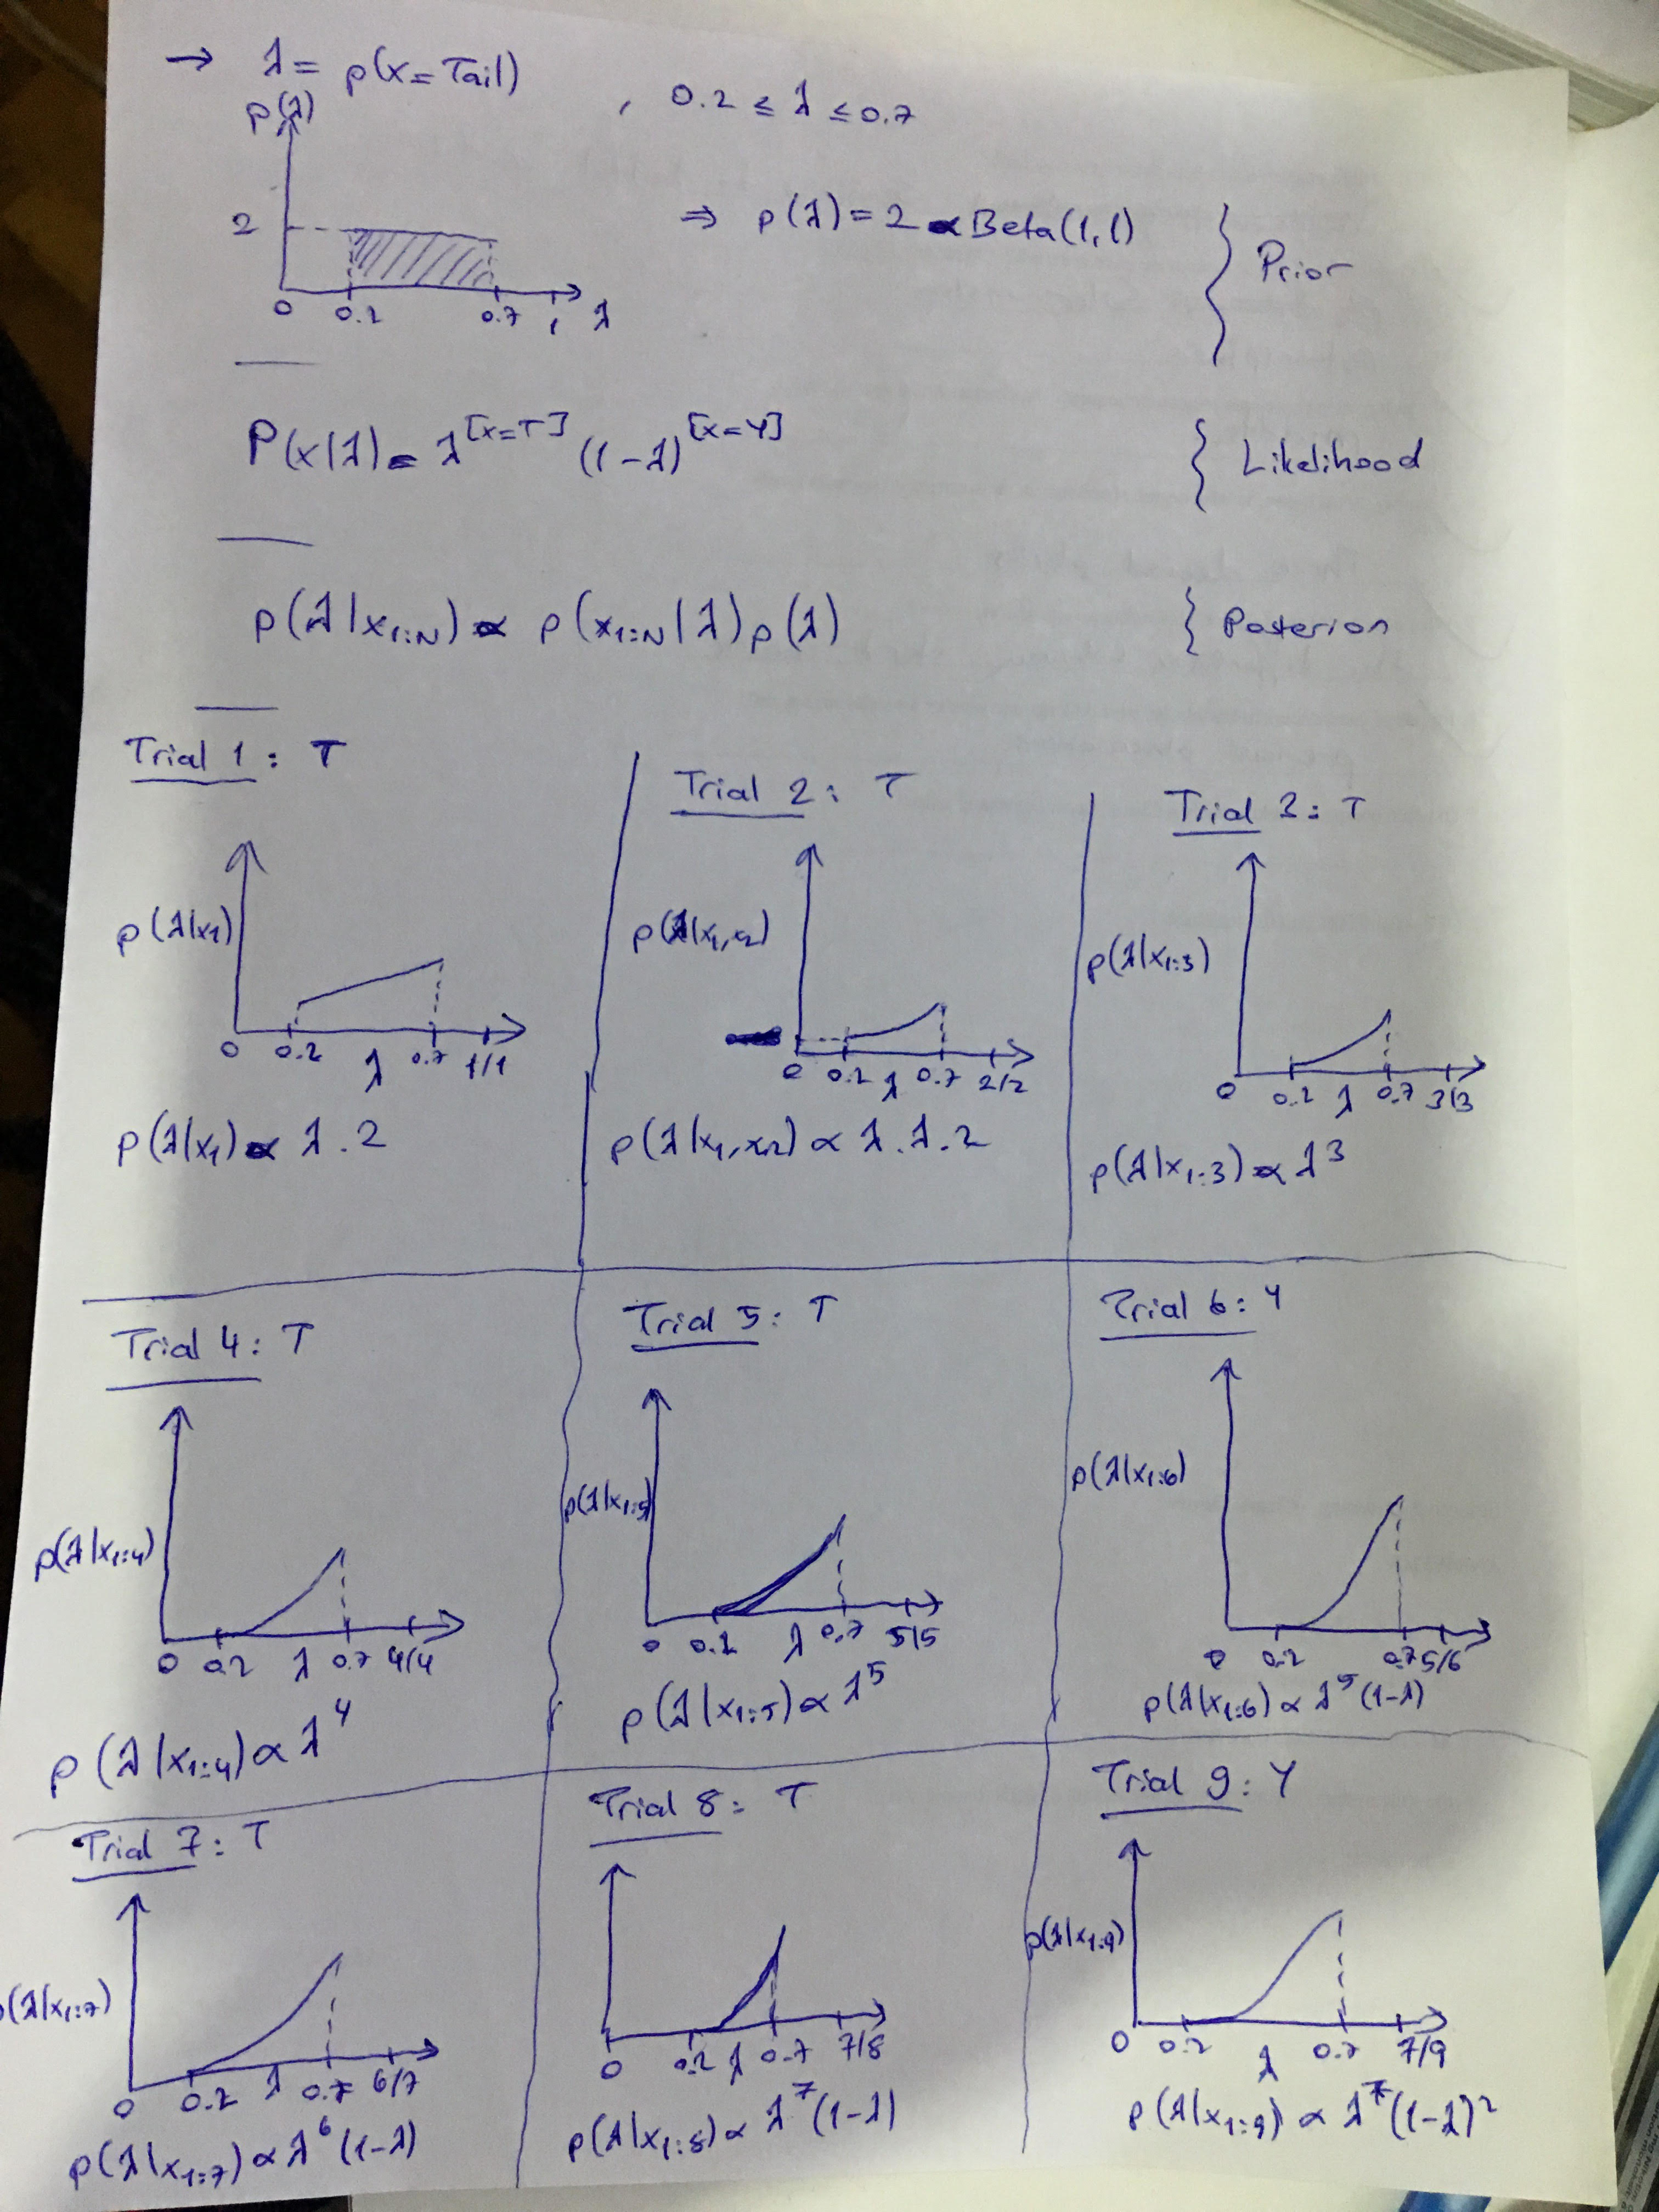 → λ = p(x=Tail) , 0.2 ≤ λ ≤ 0.7
p(λ)
2
0 0.2 0.7 1 λ
⇒ p(λ) = 2 ∝ Beta(1,1)
} Prior
P(x|λ) = λ^[x=T] (1-λ)^[x=Y]
} Likelihood
p(λ|x1:N) ∝ p(x1:N|λ)p(λ)
} Posterior
Trial 1: T
p(λ|x1)
0 0.2 λ 0.7 1/1
p(λ|x1) ∝ λ.2
Trial 2: T
p(λ|x1,x2)
0 0.2 λ 0.7 2/2
p(λ|x1,x2) ∝ λ.λ.2
Trial 3: T
p(λ|x1:3)
0 0.2 λ 0.7 3/3
p(λ|x1:3) ∝ λ^3
Trial 4: T
p(λ|x1:4)
0 0.2 λ 0.7 4/4
p(λ|x1:4) ∝ λ^4
Trial 5: T
p(λ|x1:5)
0 0.2 λ 0.7 5/5
p(λ|x1:5) ∝ λ^5
Trial 6: Y
p(λ|x1:6)
0 0.2 0.7 5/6
p(λ|x1:6) ∝ λ^5(1-λ)
Trial 7: T
p(λ|x1:7)
0 0.2 λ 0.7 6/7
p(λ|x1:7) ∝ λ^6(1-λ)
Trial 8: T
0 0.2 λ 0.7 7/8
p(λ|x1:8) ∝ λ^7(1-λ)
Trial 9: Y
p(λ|x1:9)
0 0.2 λ 0.7 7/9
p(λ|x1:9) ∝ λ^7(1-λ)^2